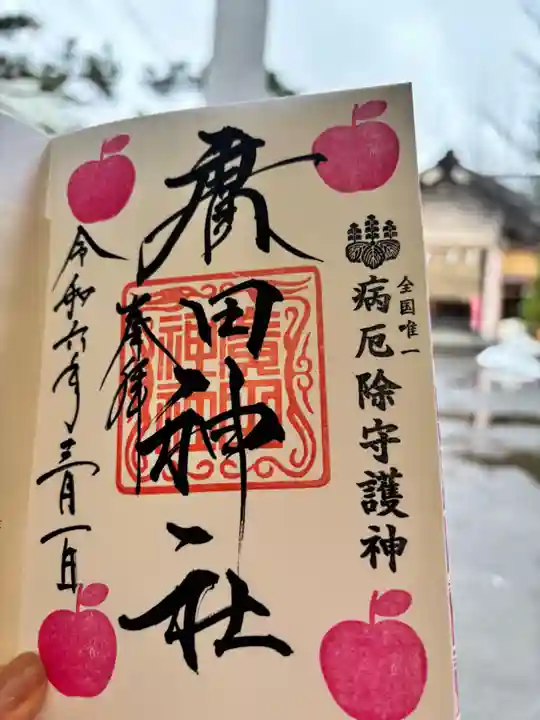 全国唯一
病厄除守護神
廣田神社
奉拝
令和六年三月一日